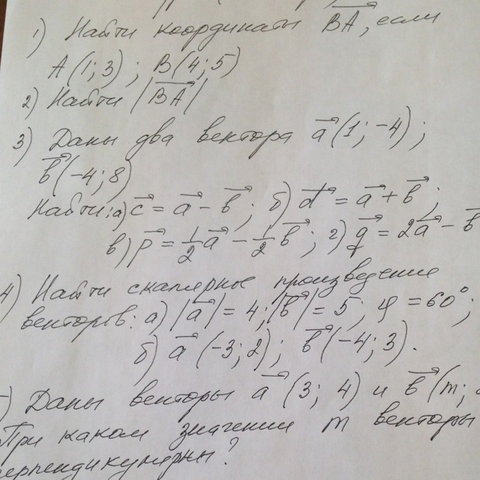 1) Найти координаты BA, если
A(1;3); B(4;5)
2) Найти |BA|
3) Даны два вектора a(1;-4);
b(-4;8)
Найти: а) c = a - b; б) d = a + b;
в) p = 1/2 a - 1/2 b; г) q = 2a - b
4) Найти скалярное произведение
векторов: а) |a| = 4; |b| = 5, φ = 60°;
б) a(-3;2); b(-4;3).
Даны векторы a(3;4) и b(m;
При каком значении m векторы
перпендикулярны?